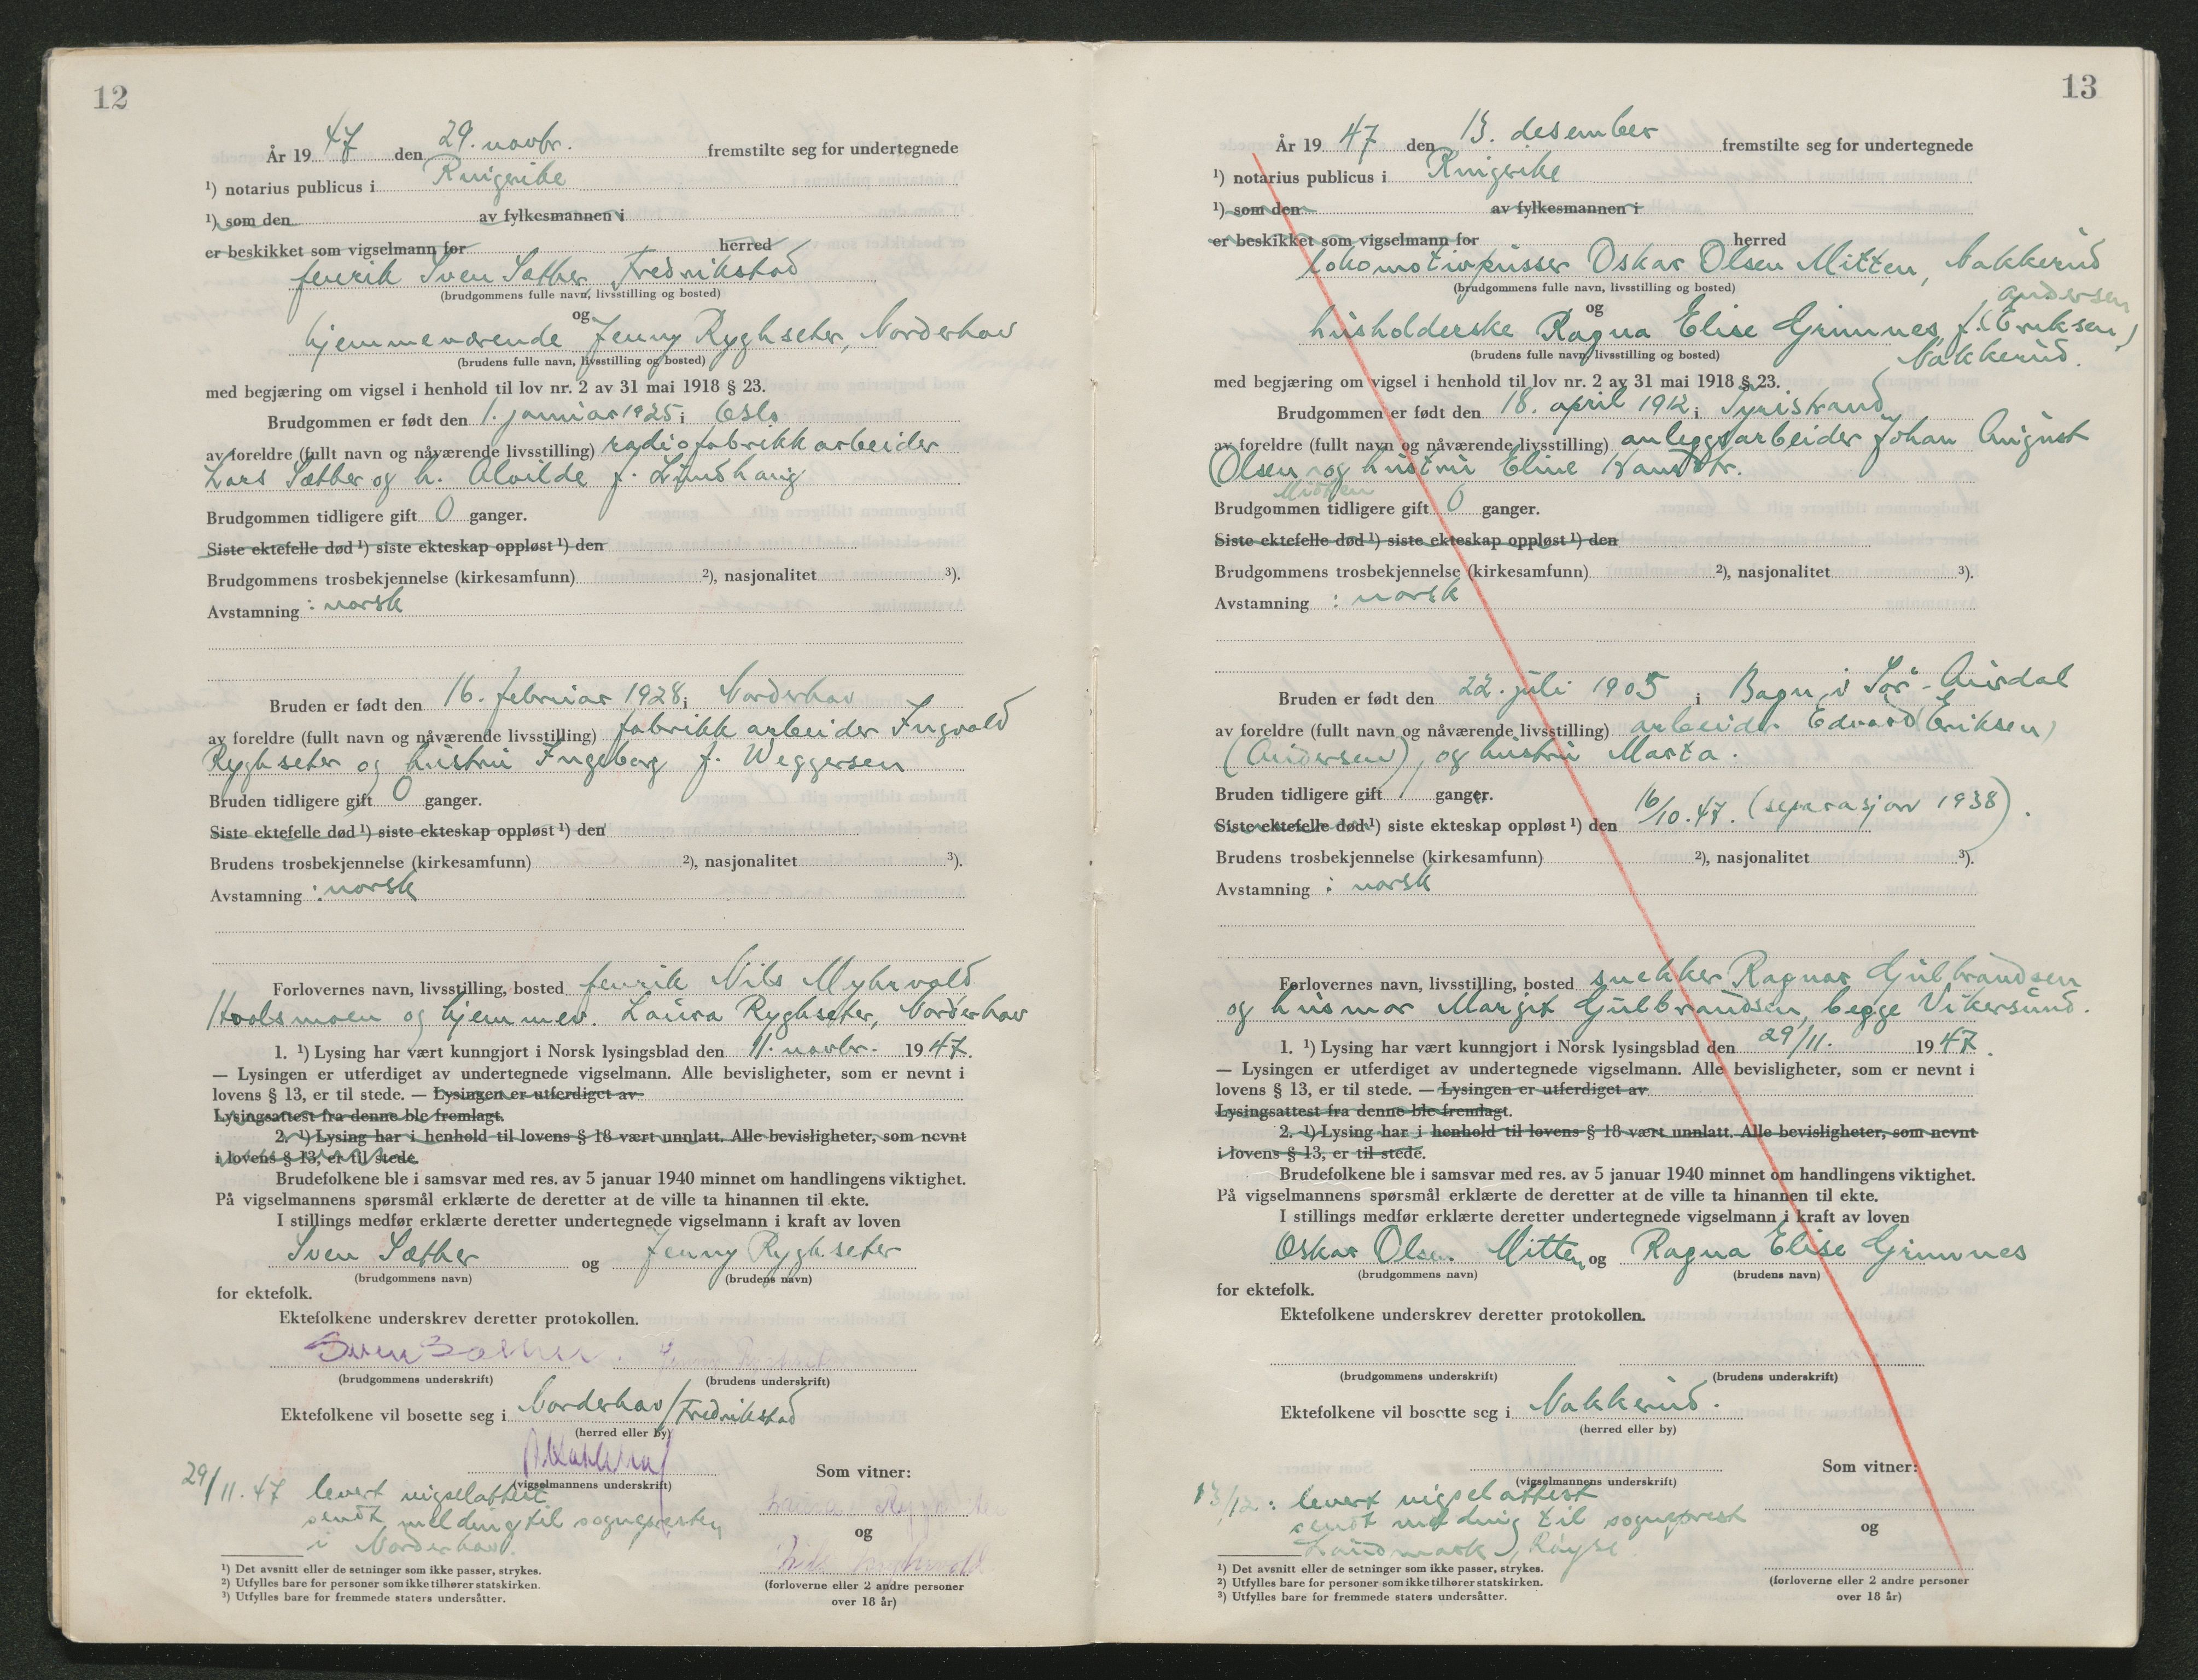 12
År 19 47 den 29. novbr. fremstilte seg for undertegnede
¹) notarius publicus i Ringerike
¹) som den av fylkesmannen i
er beskikket som vigselmann for herred
fenrik Sven Sæther, Fredrikstad
(brudgommens fulle navn, livsstilling og bosted)
og
hjemmeværende Jenny Ryghseter, Norderhov
(brudens fulle navn, livsstilling og bosted)
med begjæring om vigsel i henhold til lov nr. 2 av 31 mai 1918 § 23.
Brudgommen er født den 1. januar 1925 i Oslo
av foreldre (fullt navn og nåværende livsstilling) radiofabrikkarbeider
Lars Sæther og h. Alvilde f. Lindhaug
Brudgommen tidligere gift 0 ganger.
Siste ektefelle død ¹) siste ekteskap oppløst ¹) den
Brudgommens trosbekjennelse (kirkesamfunn) ²), nasjonalitet ³).
Avstamning : norsk
Bruden er født den 16. februar 1928 i Norderhov
av foreldre (fullt navn og nåværende livsstilling) fabrikkarbeider Ingvald
Ryghseter og hustru Ingeborg f. Weggersen
Bruden tidligere gift 0 ganger.
Siste ektefelle død ¹) siste ekteskap oppløst ¹) den
Brudens trosbekjennelse (kirkesamfunn) ²), nasjonalitet ³).
Avstamning : norsk
Forlovernes navn, livsstilling, bosted fenrik Nils Myhrvold
og hjemmev. Laura Ryghseter, Norderhov
1. ¹) Lysing har vært kunngjort i Norsk lysingsblad den 11. novbr. 19 47.
— Lysingen er utferdiget av undertegnede vigselmann. Alle bevisligheter, som er nevnt i
lovens § 13, er til stede. — Lysingen er utferdiget av
Lysingsattest fra denne ble fremlagt.
2. ¹) Lysing har i henhold til lovens § 18 vært unnlatt. Alle bevisligheter, som nevnt
i lovens § 13, er til stede.
Brudefolkene ble i samsvar med res. av 5 januar 1940 minnet om handlingens viktighet.
På vigselmannens spørsmål erklærte de deretter at de ville ta hinannen til ekte.
I stillings medfør erklærte deretter undertegnede vigselmann i kraft av loven
Sven Sæther og Jenny Ryghseter
(brudgommens navn) (brudens navn)
for ektefolk.
Ektefolkene underskrev deretter protokollen.
Sven Sæther. Jenny Ryghseter
(brudgommens underskrift) (brudens underskrift)
Ektefolkene vil bosette seg i Norderhov/Fredrikstad
(herred eller by)
(vigselmannens underskrift)
Som vitner:
29/11.47 levert vigselattest
sendt melding til sognepresten
i Norderhov.
Laura Ryghseter
og
Nils Myhrvold
(forloverne eller 2 andre personer
over 18 år)
¹) Det avsnitt eller de setninger som ikke passer, strykes.
²) Utfylles bare for personer som ikke tilhører statskirken.
³) Utfylles bare for fremmede staters undersåtter.
13
År 19 47 den 13. desember fremstilte seg for undertegnede
¹) notarius publicus i Ringerike
¹) som den av fylkesmannen i
er beskikket som vigselmann for herred
lokomotivpusser Oskar Olsen Mitten, Nakkerud
(brudgommens fulle navn, livsstilling og bosted)
og
Andersen
husholderske Ragna Elise Grimnes, f. (Eriksen)
(brudens fulle navn, livsstilling og bosted)
Nakkerud.
med begjæring om vigsel i henhold til lov nr. 2 av 31 mai 1918 § 23.
Brudgommen er født den 18. april 1912 i Tyristrand
av foreldre (fullt navn og nåværende livsstilling) anleggsarbeider Johan August
(Olsen og hustru Eline Hansdtr.
Mitten
Brudgommen tidligere gift 0 ganger.
Siste ektefelle død ¹) siste ekteskap oppløst ¹) den
Brudgommens trosbekjennelse (kirkesamfunn) ²), nasjonalitet ³).
Avstamning : norsk
Bruden er født den 22. juli 1905 i Bagn i Sør-Aurdal
av foreldre (fullt navn og nåværende livsstilling) arbeider Edvard (Eriksen)
(Andersen), og hustru Marta.
Bruden tidligere gift 1 ganger.
Siste ektefelle død ¹) siste ekteskap oppløst ¹) den 16/10.47. (separasjon 1938).
Brudens trosbekjennelse (kirkesamfunn) ²), nasjonalitet ³).
Avstamning : norsk
Forlovernes navn, livsstilling, bosted snekker Ragnar Gulbrandsen
og husmor Margit Gulbrandsen, begge Vikersund.
1. ¹) Lysing har vært kunngjort i Norsk lysingsblad den 29/11. 19 47.
— Lysingen er utferdiget av undertegnede vigselmann. Alle bevisligheter, som er nevnt i
lovens § 13, er til stede. — Lysingen er utferdiget av
Lysingsattest fra denne ble fremlagt.
2. ¹) Lysing har i henhold til lovens § 18 vært unnlatt. Alle bevisligheter, som nevnt
i lovens § 13, er til stede.
Brudefolkene ble i samsvar med res. av 5 januar 1940 minnet om handlingens viktighet.
På vigselmannens spørsmål erklærte de deretter at de ville ta hinannen til ekte.
I stillings medfør erklærte deretter undertegnede vigselmann i kraft av loven
Oskar Olsen Mitten og Ragna Elise Grimnes
(brudgommens navn) (brudens navn)
for ektefolk.
Ektefolkene underskrev deretter protokollen.
(brudgommens underskrift) (brudens underskrift)
Ektefolkene vil bosette seg i Nakkerud.
(herred eller by)
(vigselmannens underskrift)
Som vitner:
13/12: levert vigselattest
sendt melding til sogneprest
Landmark, Røyse.
og
(forloverne eller 2 andre personer
over 18 år)
¹) Det avsnitt eller de setninger som ikke passer, strykes.
²) Utfylles bare for personer som ikke tilhører statskirken.
³) Utfylles bare for fremmede staters undersåtter.